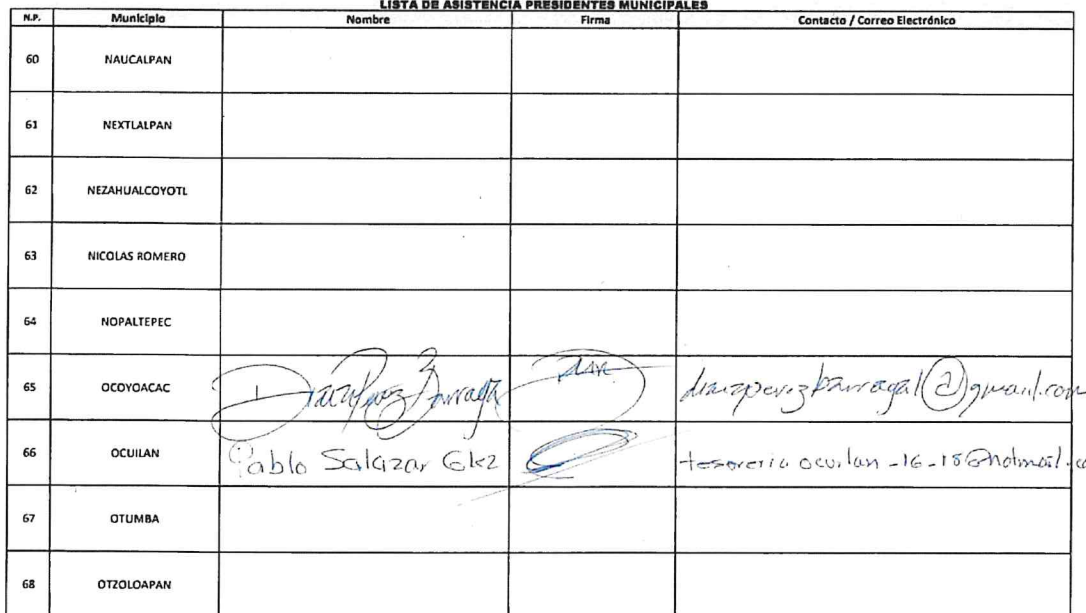 LISTA DE ASISTENCIA PRESIDENTES MUNICIPALES
N.P. Municipio Nombre Firma Contacto / Correo Electrónico
60 NAUCALPAN
61 NEXTLALPAN
62 NEZAHUALCOYOTL
63 NICOLAS ROMERO
64 NOPALTEPEC
65 OCOYOACAC
66 OCUILAN Pablo Salazar Glez tesoreria ocuilan_16_18@hotmail.co
67 OTUMBA
68 OTZOLOAPAN